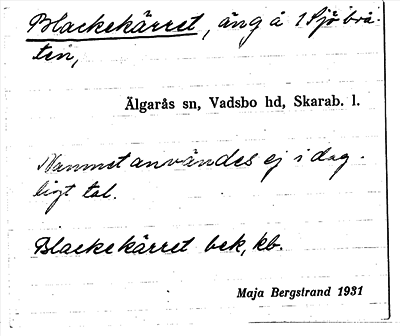 Blackekärret, äng å 1 Sjöbrå-
ten,
Älgarås sn, Vadsbo hd, Skarab. l.
Namnet användes ej i dag-
ligt tal.
Blackekärret bek, kb.
Maja Bergstrand 1931